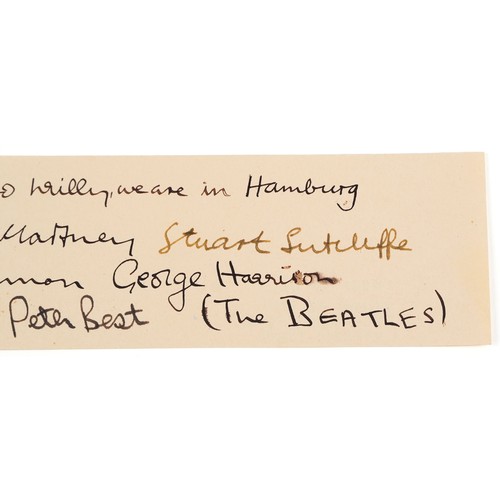 o Willy, we are in Hamburg
McArtney Stuart Sutcliffe
nnon George Harrison
Peter Best (The BEATLES)